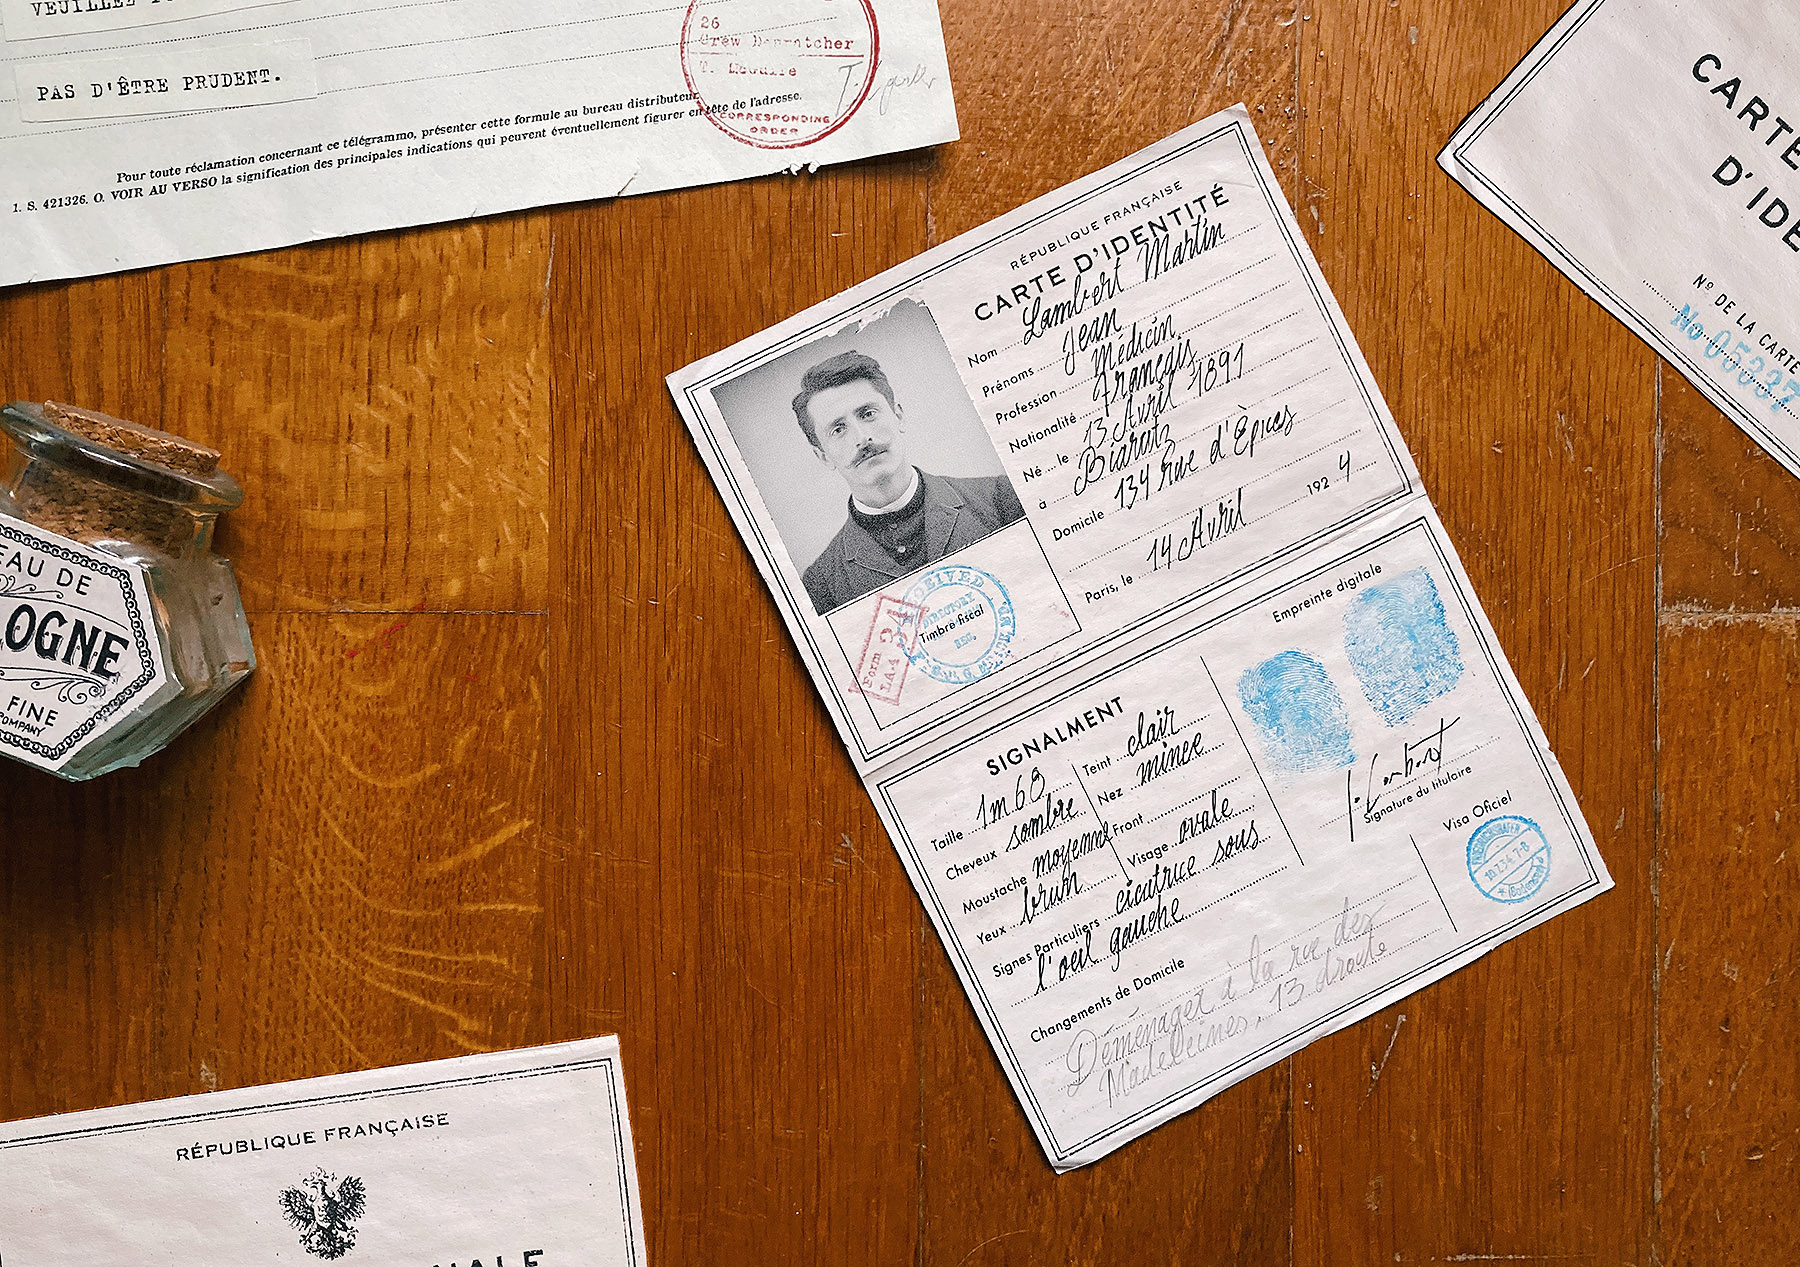 VEUILLEZ
PAS D'ÊTRE PRUDENT.
26
Crew Dispatcher
T.
CORRESPONDING
ORDER
Pour toute réclamation concernant ce télégrammo, présenter cette formule au bureau distributeur
1. S. 421326. O. VOIR AU VERSO la signification des principales indications qui peuvent éventuellement figurer en tête de l'adresse.
CARTE
D'IDE
Nº DE LA CARTE
No 05337
RÉPUBLIQUE FRANÇAISE
CARTE D'IDENTITÉ
Nom Lambert Martin
Prénoms Jean
Profession Médicin
Nationalité Français
Né le 13 Avril 1891
à Biaretz
Domicile 134 rue d'Èpices
Paris, le 14 Avril 1924
RECEIVED
DIRECTORY
Timbre fiscal
REG.
Form 34
1A4
SIGNALMENT
Taille 1m68
Cheveux sombre
Moustache moyenne
Yeux brun
Teint clair
Nez mince
Front
Visage ovale
Signes Particuliers cicatrice sous
l'oeil gauche
Changements de Domicile
Déménager à la rue dez
Madeleines, 13 droite
Empreinte digitale
J. Lambert
Signature du tituloire
Visa Oficiel
FRIEDRICHSHAFEN
10.7.34.7-8
(Bodensee)
EAU DE
OLOGNE
FINE
COMPANY
RÉPUBLIQUE FRANÇAISE
NALE